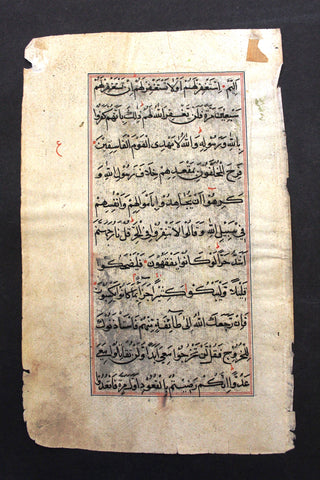 اليم استغفر لهم اولا تستغفر لهم ان تستغفر لهم
سبعين مرة فلن يغفر الله لهم ذلك بانهم كفروا
بالله ورسوله والله لا يهدى القوم الفاسقين
فرح المخلفون بمقعدهم خلاف رسول الله و
كرهوا ان يجاهدوا باموالهم وانفسهم
فى سبيل الله وقالوا لا تنفروا فى الحر قل نار جهنم
اشد حرا لو كانوا يفقهون فليضحكوا
قليلا وليبكوا كثيرا جزاء بما كانوا يكسبون
فان رجعك الله الى طائفة منهم فاستاذنوك
للخروج فقل لن تخرجوا معى ابدا ولن تقاتلوا معى
عدوا انكم رضيتم بالقعود اول مرة فاقعدوا
ع